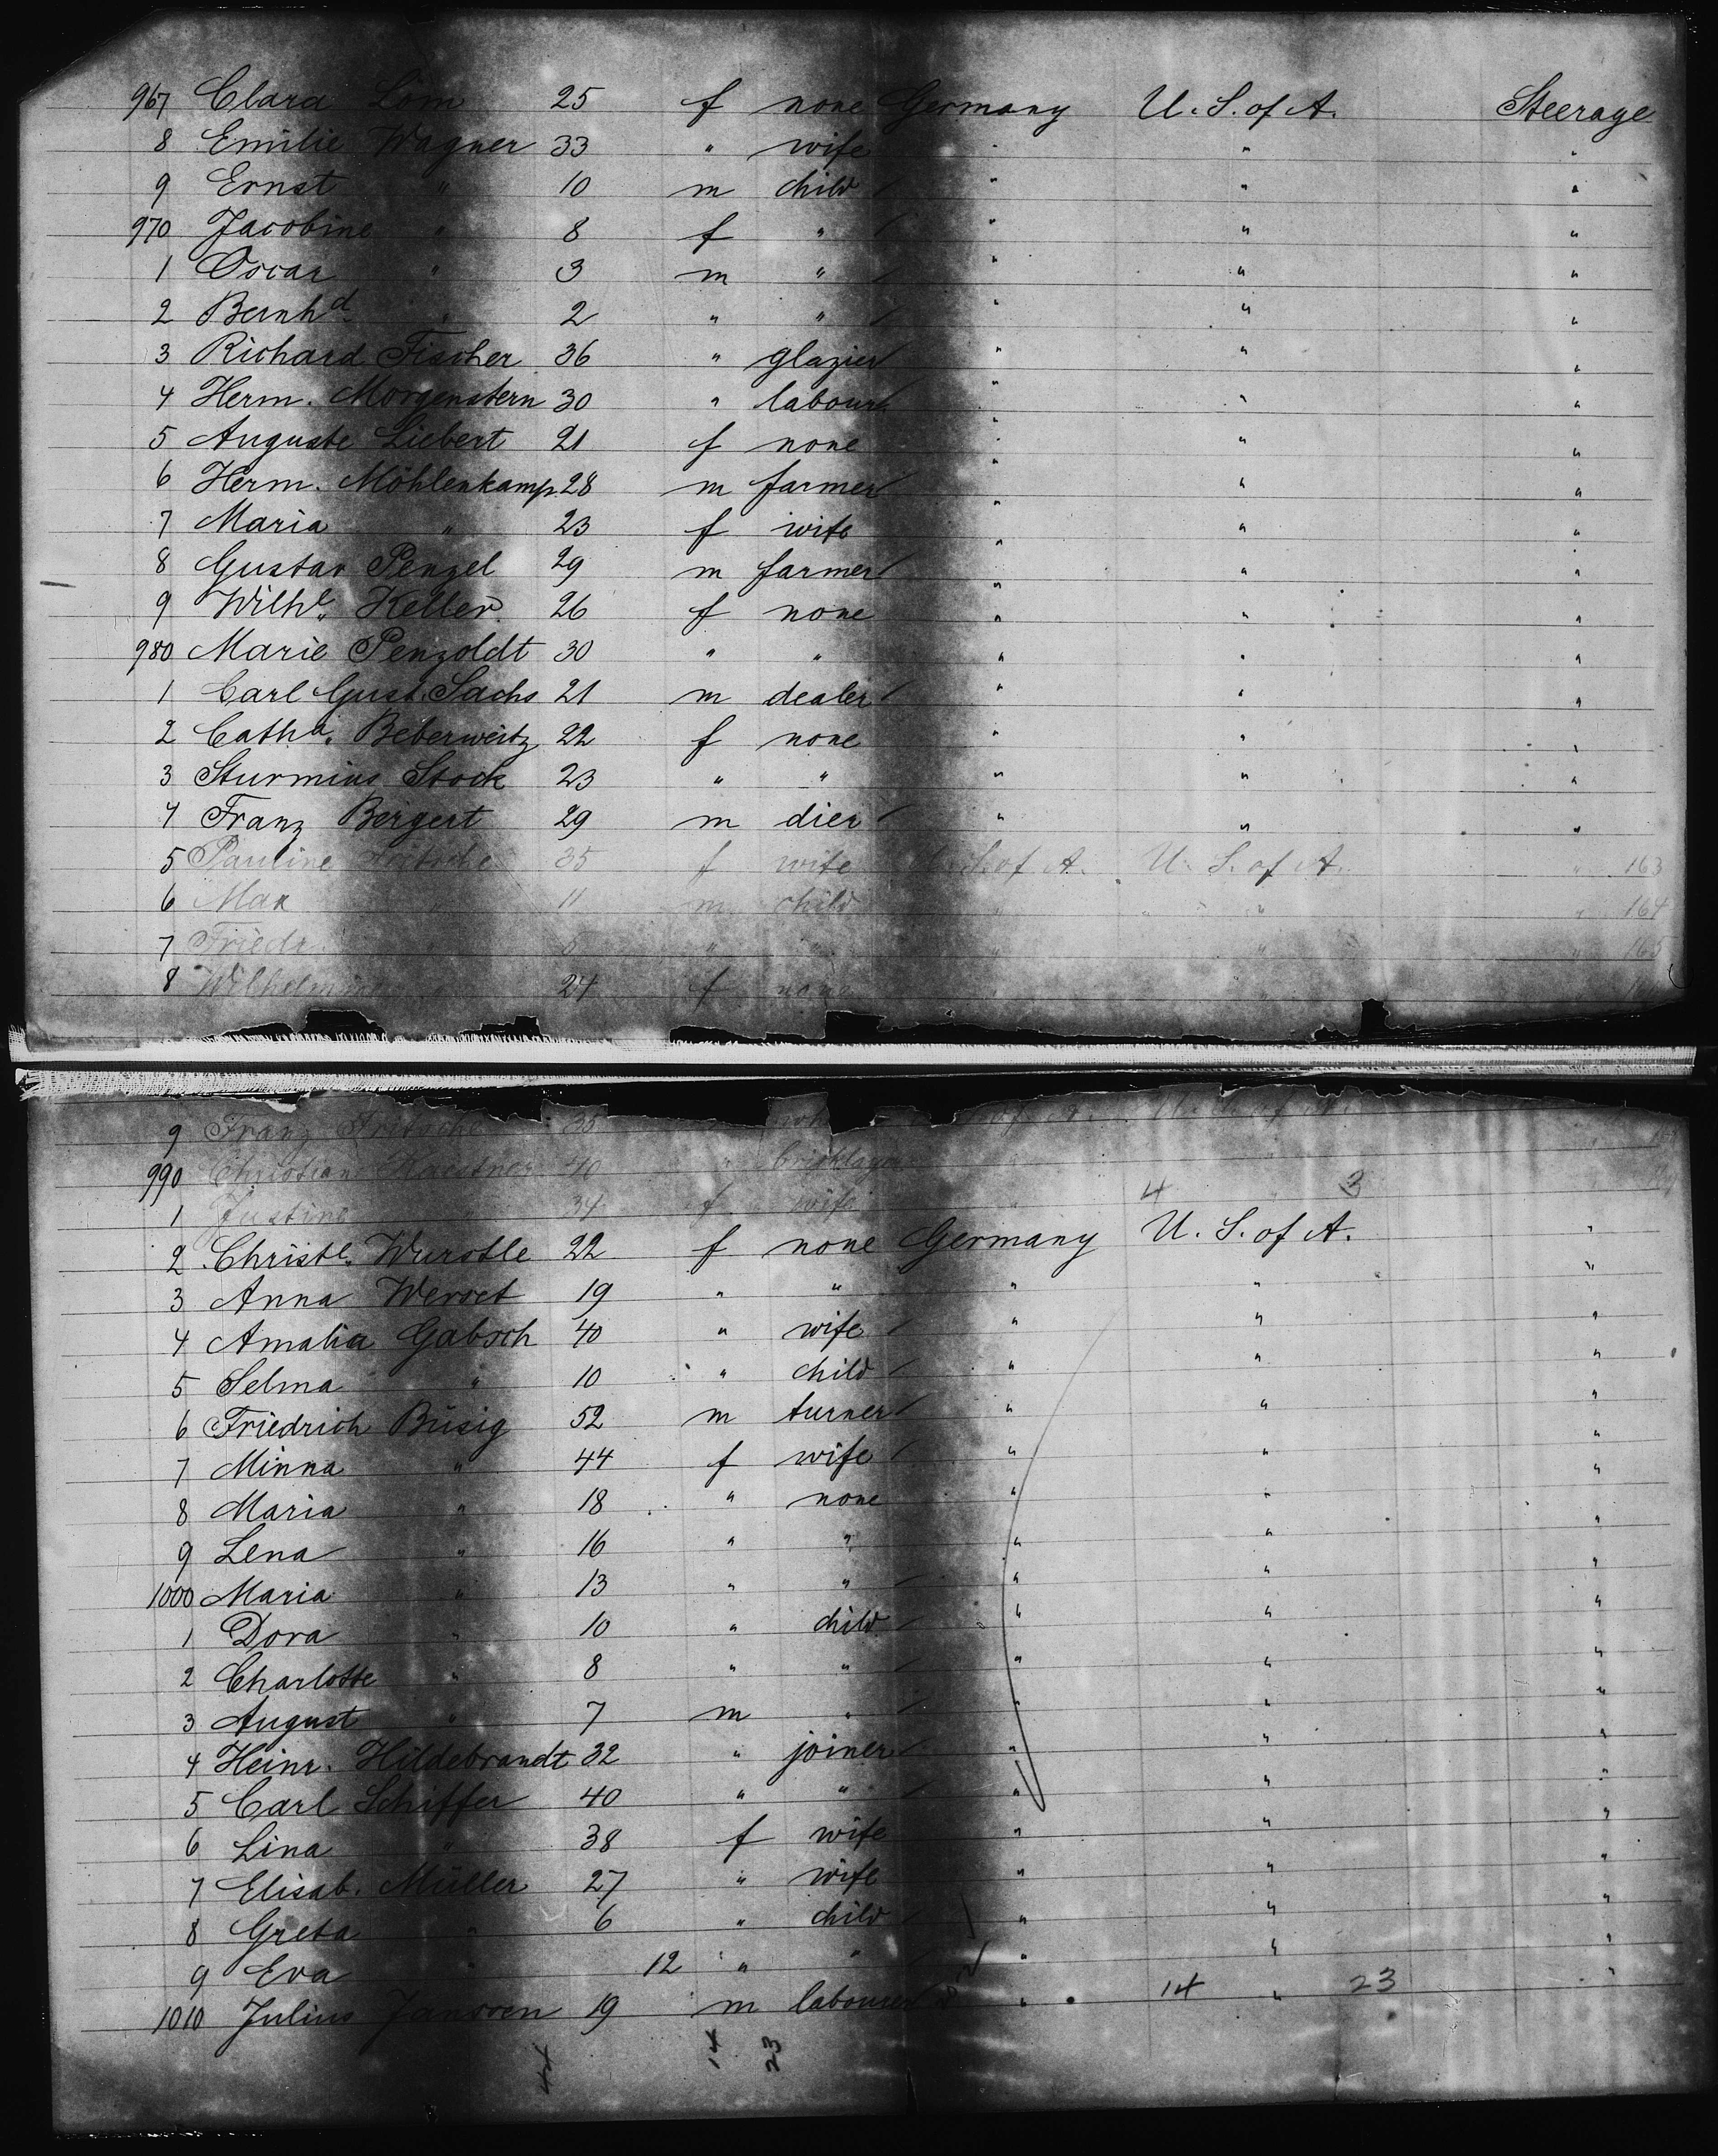 967 Clara Löm 25 f none Germany U. S. of A. Steerage
8 Emilie Wagner 33 " wife " " "
9 Ernst " 10 m child " " "
970 Jacobine " 8 f " " " "
1 Oscar " 3 m " " " "
2 Bernhd. " 2 " " " " "
3 Richard Fischer 36 " glazier " " "
4 Herm. Morgenstern 30 " labour " " "
5 Auguste Liebert 21 f none " " "
6 Herm. Möhlenkamp 28 m farmer " " "
7 Maria " 23 f wife " " "
8 Gustav Penzel 29 m farmer " " "
9 Wilhe. Keller 26 f none " " "
980 Marie Penzoldt 30 " " " " "
1 Carl Gust. Sachs 21 m dealer " " "
2 Catha. Beberweitz 22 f none " " "
3 Sturmius Stock 23 " " " " "
4 Franz Bergert 29 m dier " " "
5 Pauline Fritsche 35 f wife U. S. of A. U. S. of A. " 163
6 Max 11 m child " " " 164
7 Friedr. " 5 " " " " " 165
8 Wilhelmine 24 f none
9 Franz Fritsche 35
990 Christian Kaestner 40 " bricklayer
4 3
1 Justine " 34 f wife
2 Christe. Wurstle 22 f none Germany U. S. of A. "
3 Anna Werset 19 " " " " "
4 Amalia Gabsch 40 " wife " " "
5 Selma " 10 " child " " "
6 Friedrich Büsig 52 m turner " " "
7 Minna " 44 f wife " " "
8 Maria " 18 " none " " "
9 Lena " 16 " " " " "
1000 Maria " 13 " " " " "
1 Dora " 10 " child " " "
2 Charlotte " 8 " " " " "
3 August " 7 m " " " "
4 Heinr. Hildebrandt 32 " joiner " " "
5 Carl Schiffer 40 " " " " "
6 Lina " 38 f wife " " "
7 Elisab. Müller 27 " wife " " "
8 Greta " 6 " child " " "
9 Eva " 12 " " " " "
1010 Julius Janssen 19 m labourer " 14 " 23 "
44 14 23